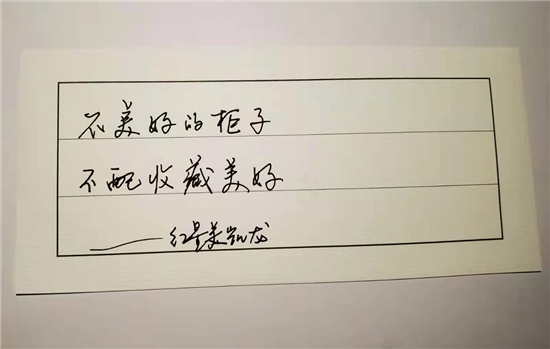 不美好的柜子
不配收藏美好
——红星美凯龙